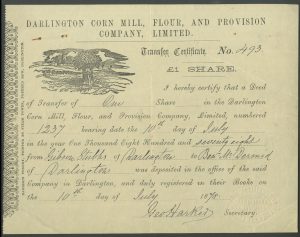 DARLINGTON CORN MILL, FLOUR, AND PROVISION
COMPANY, LIMITED.
Transfer Certificate No. 493
£1 SHARE.
I hereby certify that a Deed
of Transfer of One Share in the Darlington
Corn Mill, Flour, and Provision Company, Limited, numbered
1237 bearing date the 10th day of July
in the year One Thousand Eight Hundred and seventy eight
from Gibson Stubbs of Darlington to Ben McDermid
of Darlington was deposited in the office of the said
Company in Darlington, and duly registered in their Books on
the 10th day of July 1878
Geo Harker Secretary.